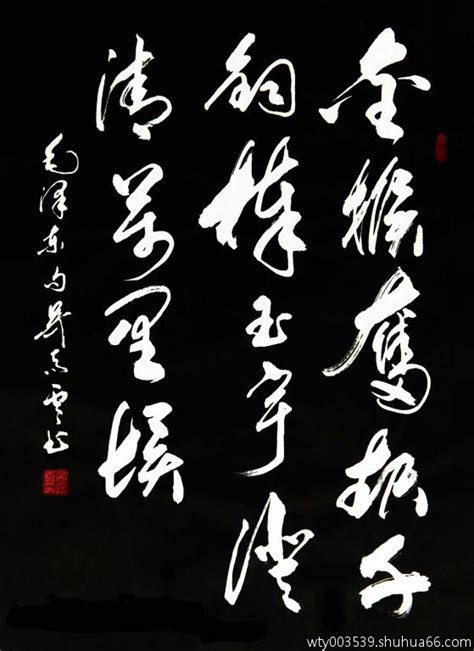 金猴奮起千
鈞棒玉宇澄
清萬里埃
毛泽东句
wty003539.shuhua66.com